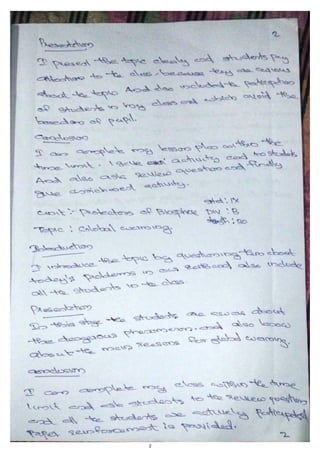 2
Presentation
I present the topic clearly and students pay
attention to the class because they are serious
about the topic And also included the participation
of students in my class and which avoid the
boredom of pupil.
Conclusion
I can complete my lesson plan within the
time limit. I give activity card to students
And also ask review question and finally
give enrichment activity.
Std : IX
Unit :- Protectors of Biosphere Div : B
Topic : Global warming : 50
Introduction
I introduce the topic by questioning them about
today's problems in our and also include
all the students in the class.
Presentation
In this stage the students are aware about
the dangerous phenomenon. and also know
about the main reasons for global warming.
Conclusion
I can complete my class within the time
limit and ask students to the review question
and all the students are actively participated
Paper reinforcement is provided.
2
2